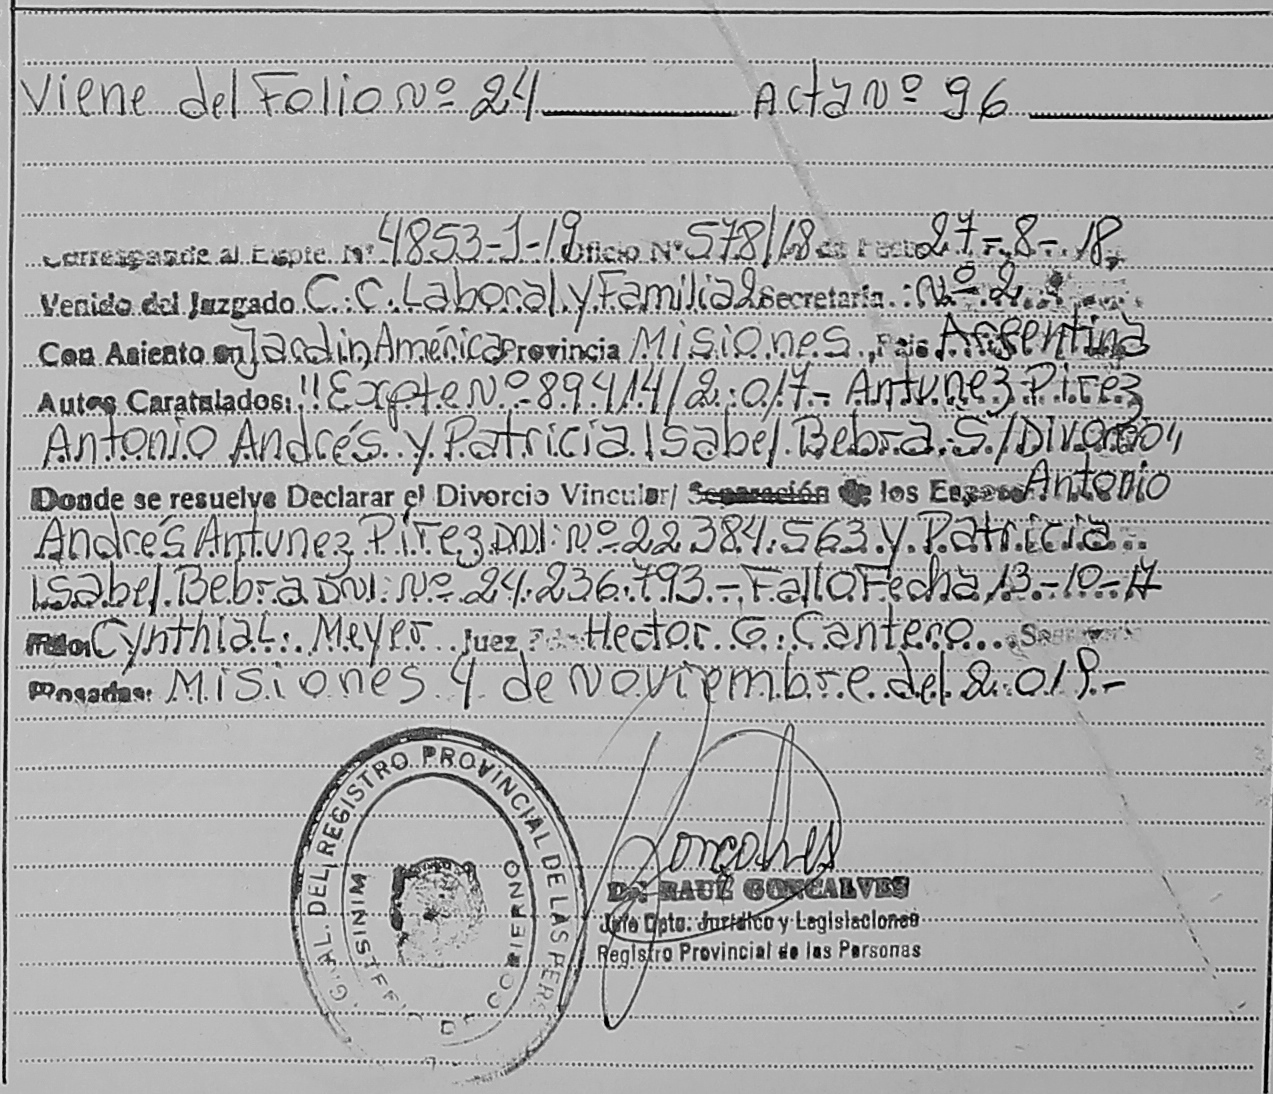 Viene del Folio Nº 24 Acta Nº 96
Corresponde al Expte. Nº 4853-1-19 Oficio Nº 578/18 de Fecha 27-8-18,
Venido del Juzgado C.C. Laboral y Familia 2 Secretaría: Nº 2
Con Asiento en Jardin América Provincia Misiones, País Argentina
Autos Caratulados: "Expte Nº 89414/2.017- Antunez Pirez
Antonio Andrés y Patricia Isabel Bebra S/Divorcio",
Donde se resuelve Declarar el Divorcio Vincular/ Separación de los Esposos Antonio
Andrés Antunez Pirez DNI: Nº 22.384.563 y Patricia
Isabel Bebra DNI: Nº 24.236.793.- Fallo Fecha 13-10-17
Fdo: Cynthia L. Meyer Juez Hector G. Cantero Secretario
Posadas: Misiones 4 de Noviembre del
Gonçalves
Dr. RAUL GONCALVES
Jefe Dpto. Jurídico y Legislaciones
Registro Provincial de las Personas
GRAL. DEL REGISTRO PROVINCIAL DE LAS PERS
MINISTERIO DE GOBIERNO